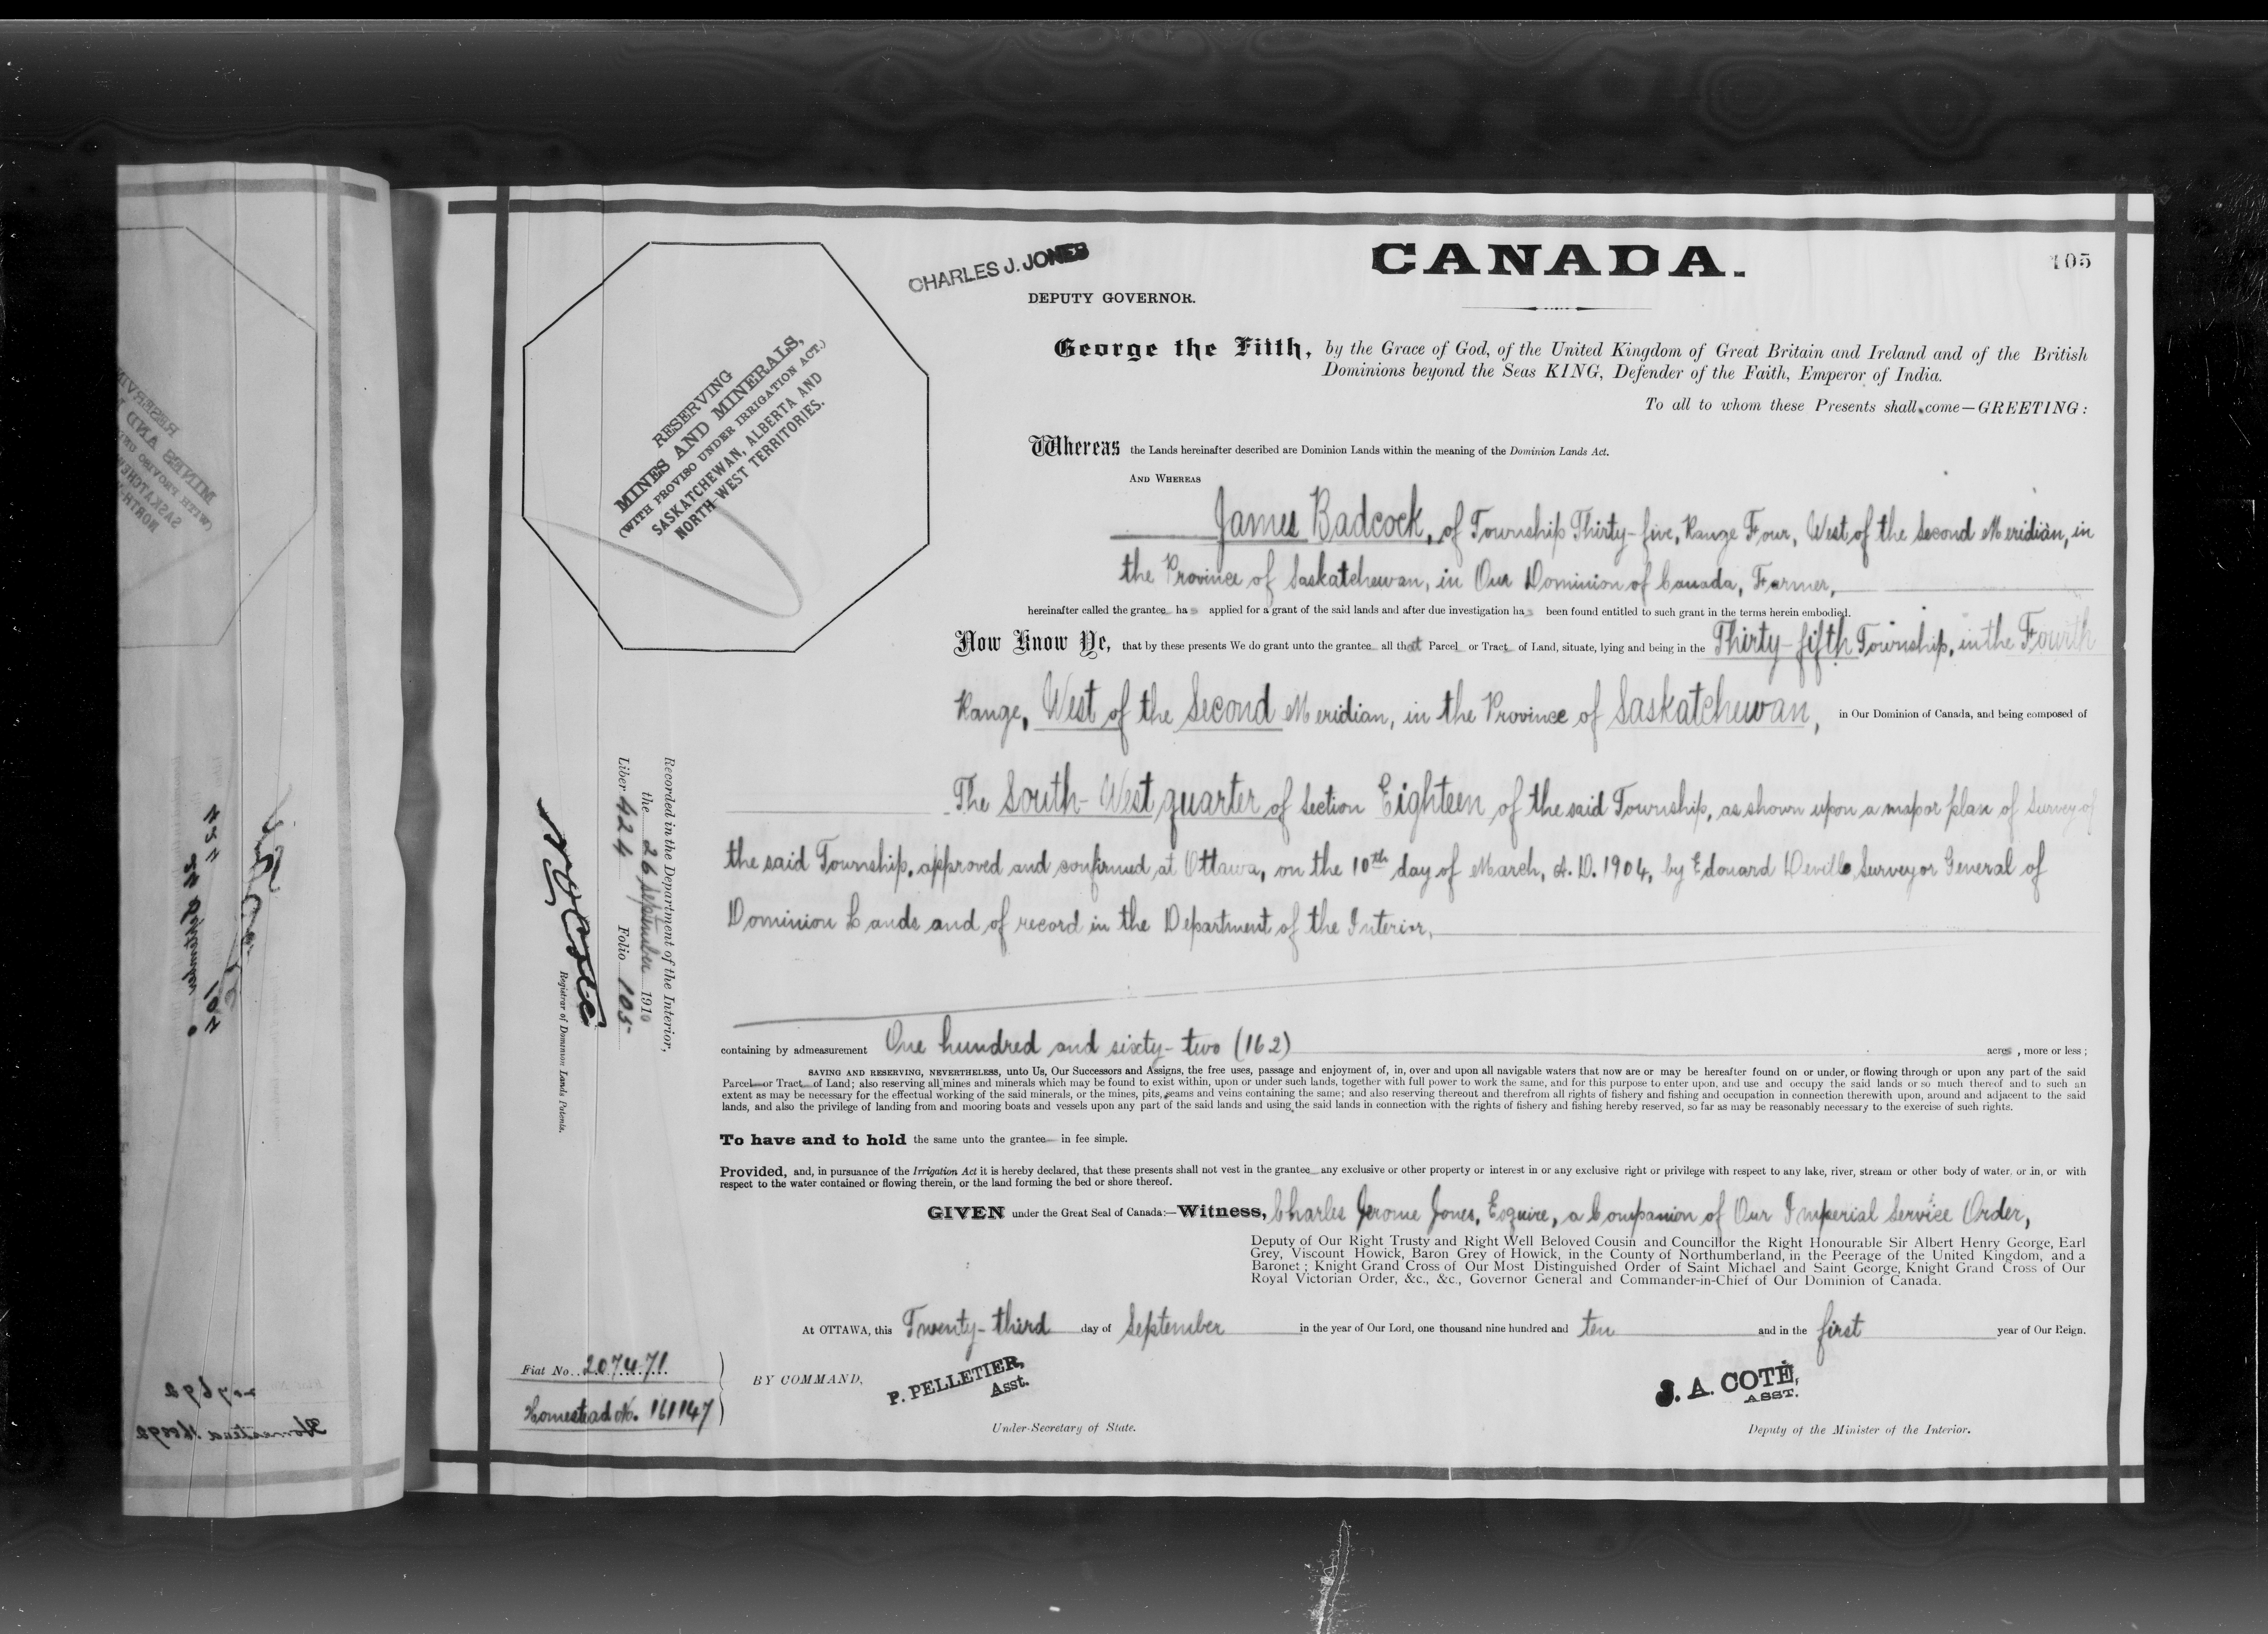 CHARLES J. JONES
CANADA.
105
DEPUTY GOVERNOR.
George the Fifth, by the Grace of God, of the United Kingdom of Great Britain and Ireland and of the British
Dominions beyond the Seas KING, Defender of the Faith, Emperor of India.
To all to whom these Presents shall come—GREETING:
RESERVING
MINES AND MINERALS,
(WITH PROVISO UNDER IRRIGATION ACT.)
SASKATCHEWAN, ALBERTA AND
NORTH-WEST TERRITORIES.
Whereas the Lands hereinafter described are Dominion Lands within the meaning of the Dominion Lands Act.
AND WHEREAS
James Badcock, of Township Thirty-five, Range Four, West of the Second Meridian, in
the Province of Saskatchewan, in Our Dominion of Canada, Farmer,
hereinafter called the grantee has applied for a grant of the said lands and after due investigation has been found entitled to such grant in the terms herein embodied.
Now Know Ye, that by these presents We do grant unto the grantee all that Parcel or Tract of Land, situate, lying and being in the Thirty-fifth Township, in the Fourth
Range, West of the Second Meridian, in the Province of Saskatchewan, in Our Dominion of Canada, and being composed of
The South-West quarter of Section Eighteen of the said Township, as shown upon a map or plan of Survey of
the said Township, approved and confirmed at Ottawa, on the 10th day of March, A.D. 1904, by Edouard Deville Surveyor General of
Dominion Lands and of record in the Department of the Interior,
containing by admeasurement One hundred and sixty-two (162) acres, more or less;
SAVING AND RESERVING, NEVERTHELESS, unto Us, Our Successors and Assigns, the free uses, passage and enjoyment of, in, over and upon all navigable waters that now are or may be hereafter found on or under, or flowing through or upon any part of the said
Parcel or Tract of Land; also reserving all mines and minerals which may be found to exist within, upon or under such lands, together with full power to work the same, and for this purpose to enter upon, and use and occupy the said lands or so much thereof and to such an
extent as may be necessary for the effectual working of the said minerals, or the mines, pits, seams and veins containing the same; and also reserving thereout and therefrom all rights of fishery and fishing and occupation in connection therewith upon, around and adjacent to the said
lands, and also the privilege of landing from and mooring boats and vessels upon any part of the said lands and using the said lands in connection with the rights of fishery and fishing hereby reserved, so far as may be reasonably necessary to the exercise of such rights.
To have and to hold the same unto the grantee in fee simple.
Provided, and, in pursuance of the Irrigation Act it is hereby declared, that these presents shall not vest in the grantee any exclusive or other property or interest in or any exclusive right or privilege with respect to any lake, river, stream or other body of water, or in, or with
respect to the water contained or flowing therein, or the land forming the bed or shore thereof.
GIVEN under the Great Seal of Canada:—Witness, Charles Jerome Jones, Esquire, a Companion of Our Imperial Service Order,
Deputy of Our Right Trusty and Right Well Beloved Cousin and Councillor the Right Honourable Sir Albert Henry George, Earl
Grey, Viscount Howick, Baron Grey of Howick, in the County of Northumberland, in the Peerage of the United Kingdom, and a
Baronet; Knight Grand Cross of Our Most Distinguished Order of Saint Michael and Saint George, Knight Grand Cross of Our
Royal Victorian Order, &c., &c., Governor General and Commander-in-Chief of Our Dominion of Canada.
At OTTAWA, this Twenty-third day of September in the year of Our Lord, one thousand nine hundred and ten and in the first year of Our Reign.
Fiat No. 207471
Homestead No. 161147
BY COMMAND,
P. PELLETIER,
Asst.
Under-Secretary of State.
J. A. COTÉ,
ASST.
Deputy of the Minister of the Interior.
Recorded in the Department of the Interior,
the 26 September 1910
Liber 424 Folio 105
N O Coté
Registrar of Dominion Lands Patents.